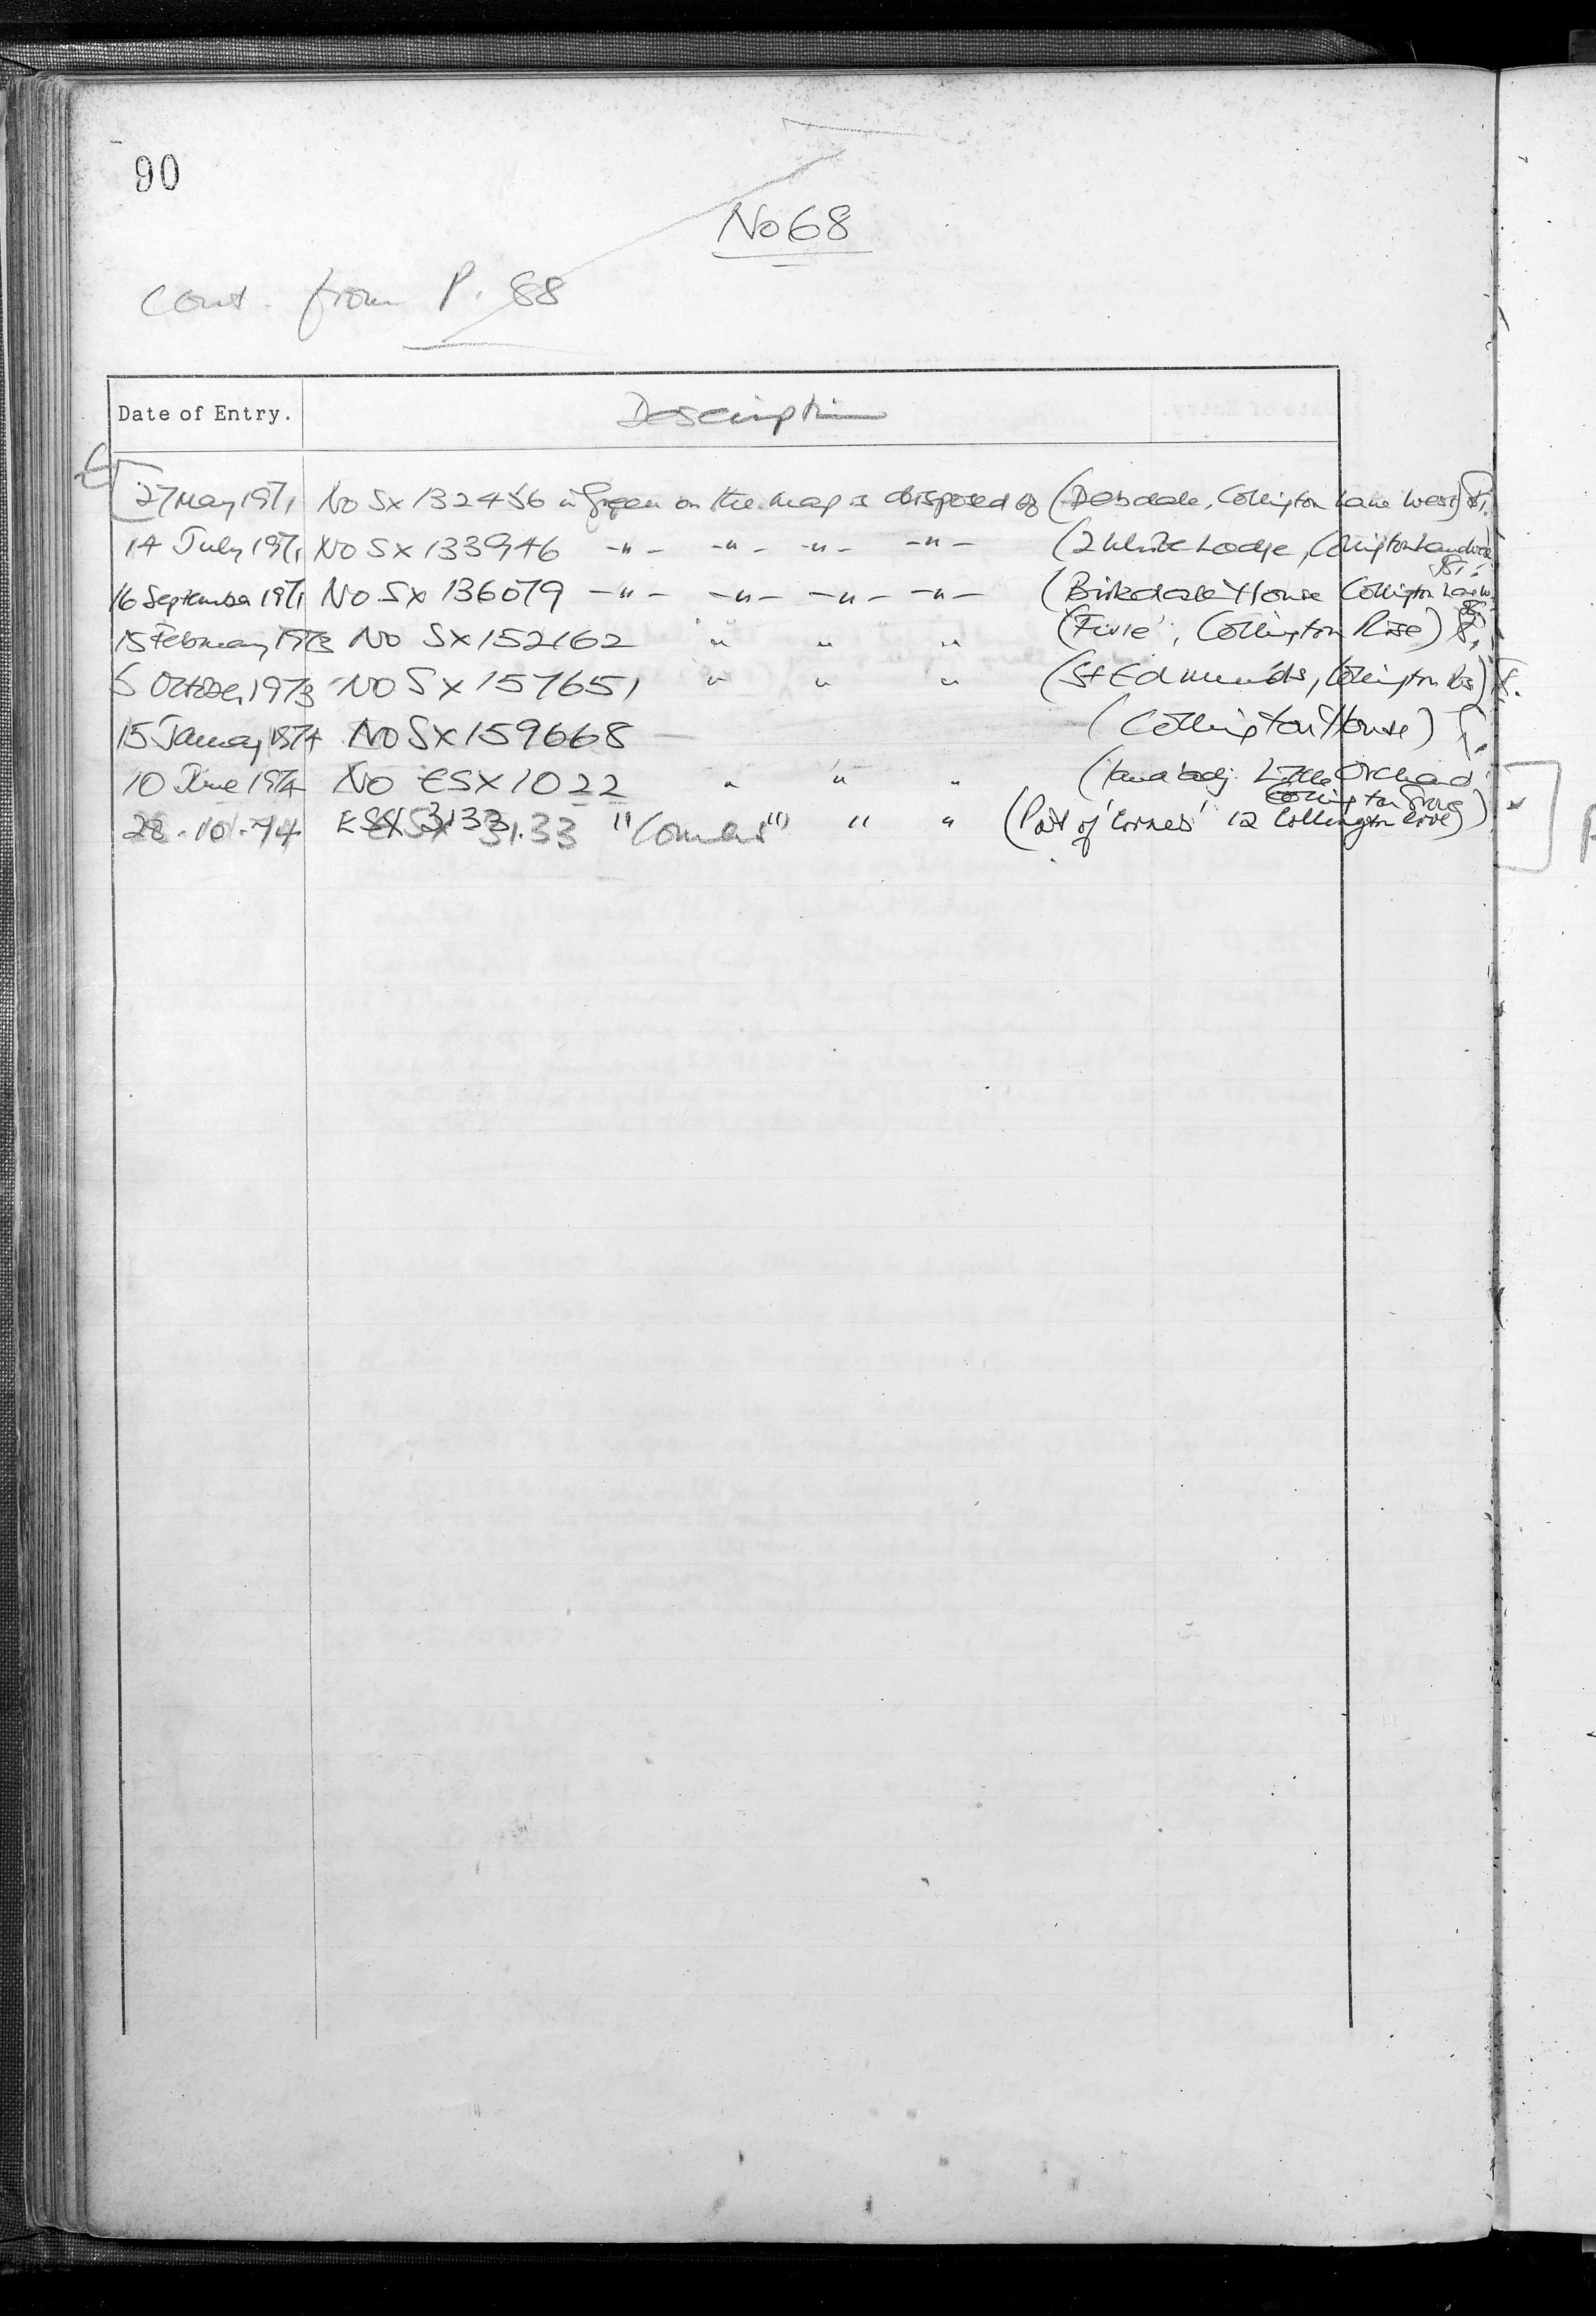 90
No 68
Cont. from P. 88
Date of Entry. Description
27 May 1971 No Sx 132456 in green on the map is disposed of (Debdale, Collington Lane West)
14 July 1971 No Sx 133946 -"- -"- -"- -"- (2 White Lodge, Collington Lane
16 September 1971 No Sx 136079 -"- -"- -"- -"- (Birkdale House Collington Lane W.
15 February 1973 No Sx 152162 " " " ( , Collington Rise)
5 October 1973 No Sx 157651 " " " (St Edmunds, Collington Ris)
15 January 1974 No Sx 159668 (Collington House)
10 June 1974 No ESX 1022 " " " (land adj. Little Orchard
Collington Grove
28.10.74 ESX 3133 3133 "Corners" " " (Part of 'Corners' 12 Collington Grove)